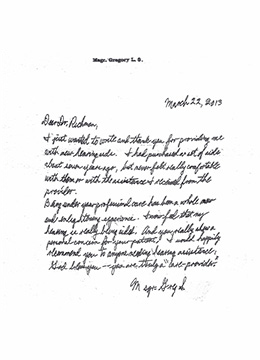 Msgr. Gregory L. S.
March 22, 2013
Dear Dr. Richman,
I just wanted to write and thank you for providing me
with new hearing aids. I had purchased a set of aids
about seven years ago, but never felt really comfortable
with them or with the assistance I received from the
provider.
Being under your professional care has been a whole new
and enlightening experience. I now feel that my
hearing is really being aided. And you really show a
personal concern for your patients. I would happily
recommend you to anyone seeking hearing assistance.
God bless you -- you are truly a "care-provider."
Msgr. Greg S.